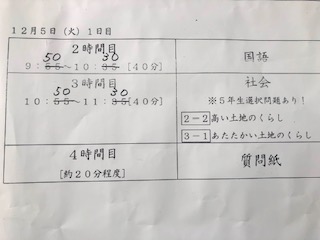 12月5日(火)1日目
2時間目
50 30
9:55~10:35 [40分]
国語
3時間目
50 30
10:55~11:35[40分]
社会
※5年生選択問題あり!
2-2 高い土地のくらし
3-1 あたたかい土地のくらし
4時間目
[約20分程度]
質問紙